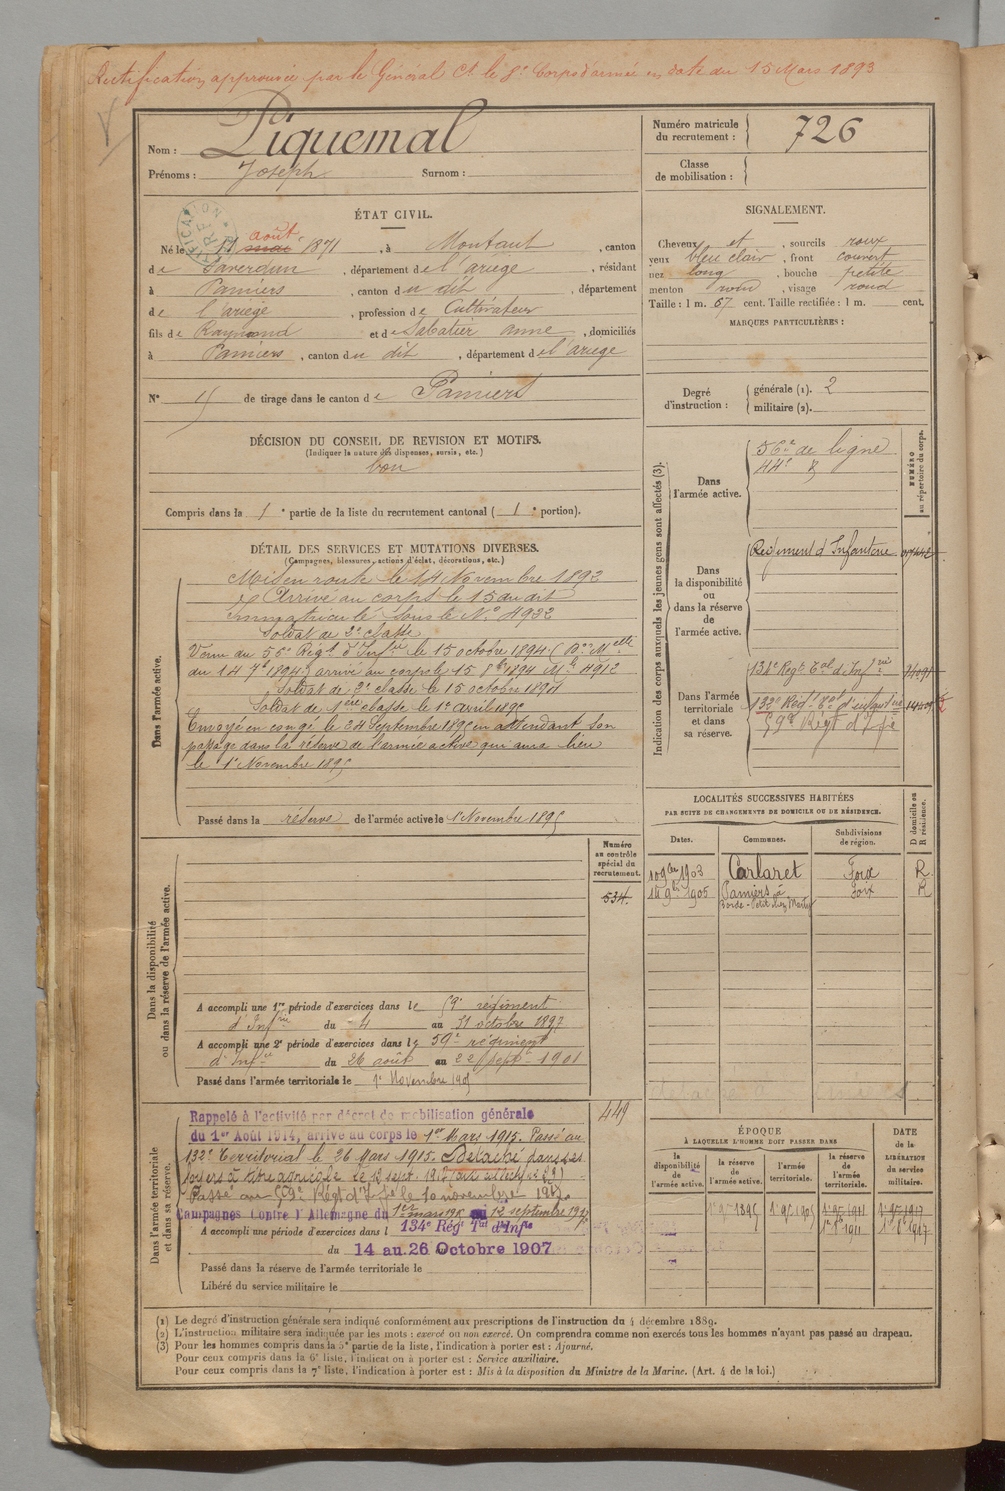 Rectification approuvée par le Général Ct le 8e Corps d'armée en date du 15 Mars 1893
Nom : Piquemal
Prénoms : Joseph Surnom :
Numéro matricule du recrutement : 726
Classe de mobilisation :
ÉTAT CIVIL.
Né le 11 août mai 1871, à Montaut, canton
de Saverdun, département de l'ariège, résidant
à Pamiers, canton du dit, département
de l'ariège, profession de Cultivateur
fils de Raymond et de Sabatier anne, domiciliés
à Pamiers, canton du dit, département de l'ariège
N° de tirage dans le canton de Pamiers
DÉCISION DU CONSEIL DE REVISION ET MOTIFS.
(Indiquer la nature des dispenses, sursis, etc.)
bon
Compris dans la 1e partie de la liste du recrutement cantonal (1e portion).
SIGNALEMENT.
Cheveux et, sourcils roux
yeux bleu clair, front couvert
nez long, bouche petite
menton rond, visage rond
Taille : 1 m. 67 cent. Taille rectifiée : 1 m. cent.
MARQUES PARTICULIÈRES :
Degré d'instruction :
générale (1). 2
militaire (2).
DÉTAIL DES SERVICES ET MUTATIONS DIVERSES.
(Campagnes, blessures, actions d'éclat, décorations, etc.)
Dans l'armée active.
Mis en route le 14 Novembre 1892
Arrivé au corps le 15 du dit
Immatriculé sous le N° 4922
Soldat de 2e classe
Venu du 56e Régt d'Infie le 15 octobre 1894 (Don Melle
du 14 7bre 1894) arrivé au corps le 15 8bre 1894 Mle 4912
Soldat de 2e classe le 15 octobre 1894
Soldat de 1ère classe le 1er avril 1895
Envoyé en congé le 24 Septembre 1895 en attendant son
passage dans la réserve de l'armée active qui aura lieu
le 1er Novembre 1895
Passé dans la réserve de l'armée active le 1er Novembre 1895
Indication des corps auxquels les jeunes gens sont affectés (3).
NUMÉRO au répertoire du corps.
Dans l'armée active.
56e de ligne
44e
Dans la disponibilité ou dans la réserve de l'armée active.
Régiment d'Infanterie
Dans l'armée territoriale et dans sa réserve.
134e Régt Tal d'Infrie
132e Régt Tal d'infanterie
59e Régt d'Infie
LOCALITÉS SUCCESSIVES HABITÉES
PAR SUITE DE CHANGEMENTS DE DOMICILE OU DE RÉSIDENCE.
Dates. Communes. Subdivisions de région. D domicile ou R résidence.
10 9bre 1903 Carlaret Foix R
14 9bre 1905 Pamiers à Foix R
Dans la disponibilité ou dans la réserve de l'armée active.
Numéro au contrôle spécial du recrutement.
534.
A accompli une 1re période d'exercices dans le 59e régiment
d'Infrie du 4 au 31 octobre 1897
A accompli une 2e période d'exercices dans le 59e régiment
d'Infie du 26 août au 22 sept 1901
Passé dans l'armée territoriale le 1er Novembre 1905
449
Dans l'armée territoriale et dans sa réserve.
Rappelé à l'activité par décret de mobilisation générale
du 1er Août 1914, arrivé au corps le 1er Mars 1915. Passé au
132e Territorial le 26 Mars 1915. Détaché dans ses
foyers à titre agricole le 12 sept. 1917
Passé au 59e Régt d'Infie le 10 novembre 1917
Campagnes Contre l'Allemagne du 1er mars 1915 au 12 septembre 1917
A accompli une période d'exercices dans l 134e Régt Tal d'Infie
du 14 au 26 Octobre 1907
Passé dans la réserve de l'armée territoriale le
Libéré du service militaire le
ÉPOQUE
À LAQUELLE L'HOMME DOIT PASSER DANS
DATE de la LIBÉRATION du service militaire.
la disponibilité de l'armée active.
la réserve de l'armée active.
l'armée territoriale.
la réserve de l'armée territoriale.
1er 9bre 1895 1er 9bre 1905 1er 9bre 1911 1er 9bre 1917
1er 8bre 1911 1er 8bre 1917
(1) Le degré d'instruction générale sera indiqué conformément aux prescriptions de l'instruction du 4 décembre 1889.
(2) L'instruction militaire sera indiquée par les mots : exercé ou non exercé. On comprendra comme non exercés tous les hommes n'ayant pas passé au drapeau.
(3) Pour les hommes compris dans la 5e partie de la liste, l'indication à porter est : Ajourné.
Pour ceux compris dans la 6e liste, l'indication à porter est : Service auxiliaire.
Pour ceux compris dans la 7e liste, l'indication à porter est : Mis à la disposition du Ministre de la Marine. (Art. 4 de la loi.)